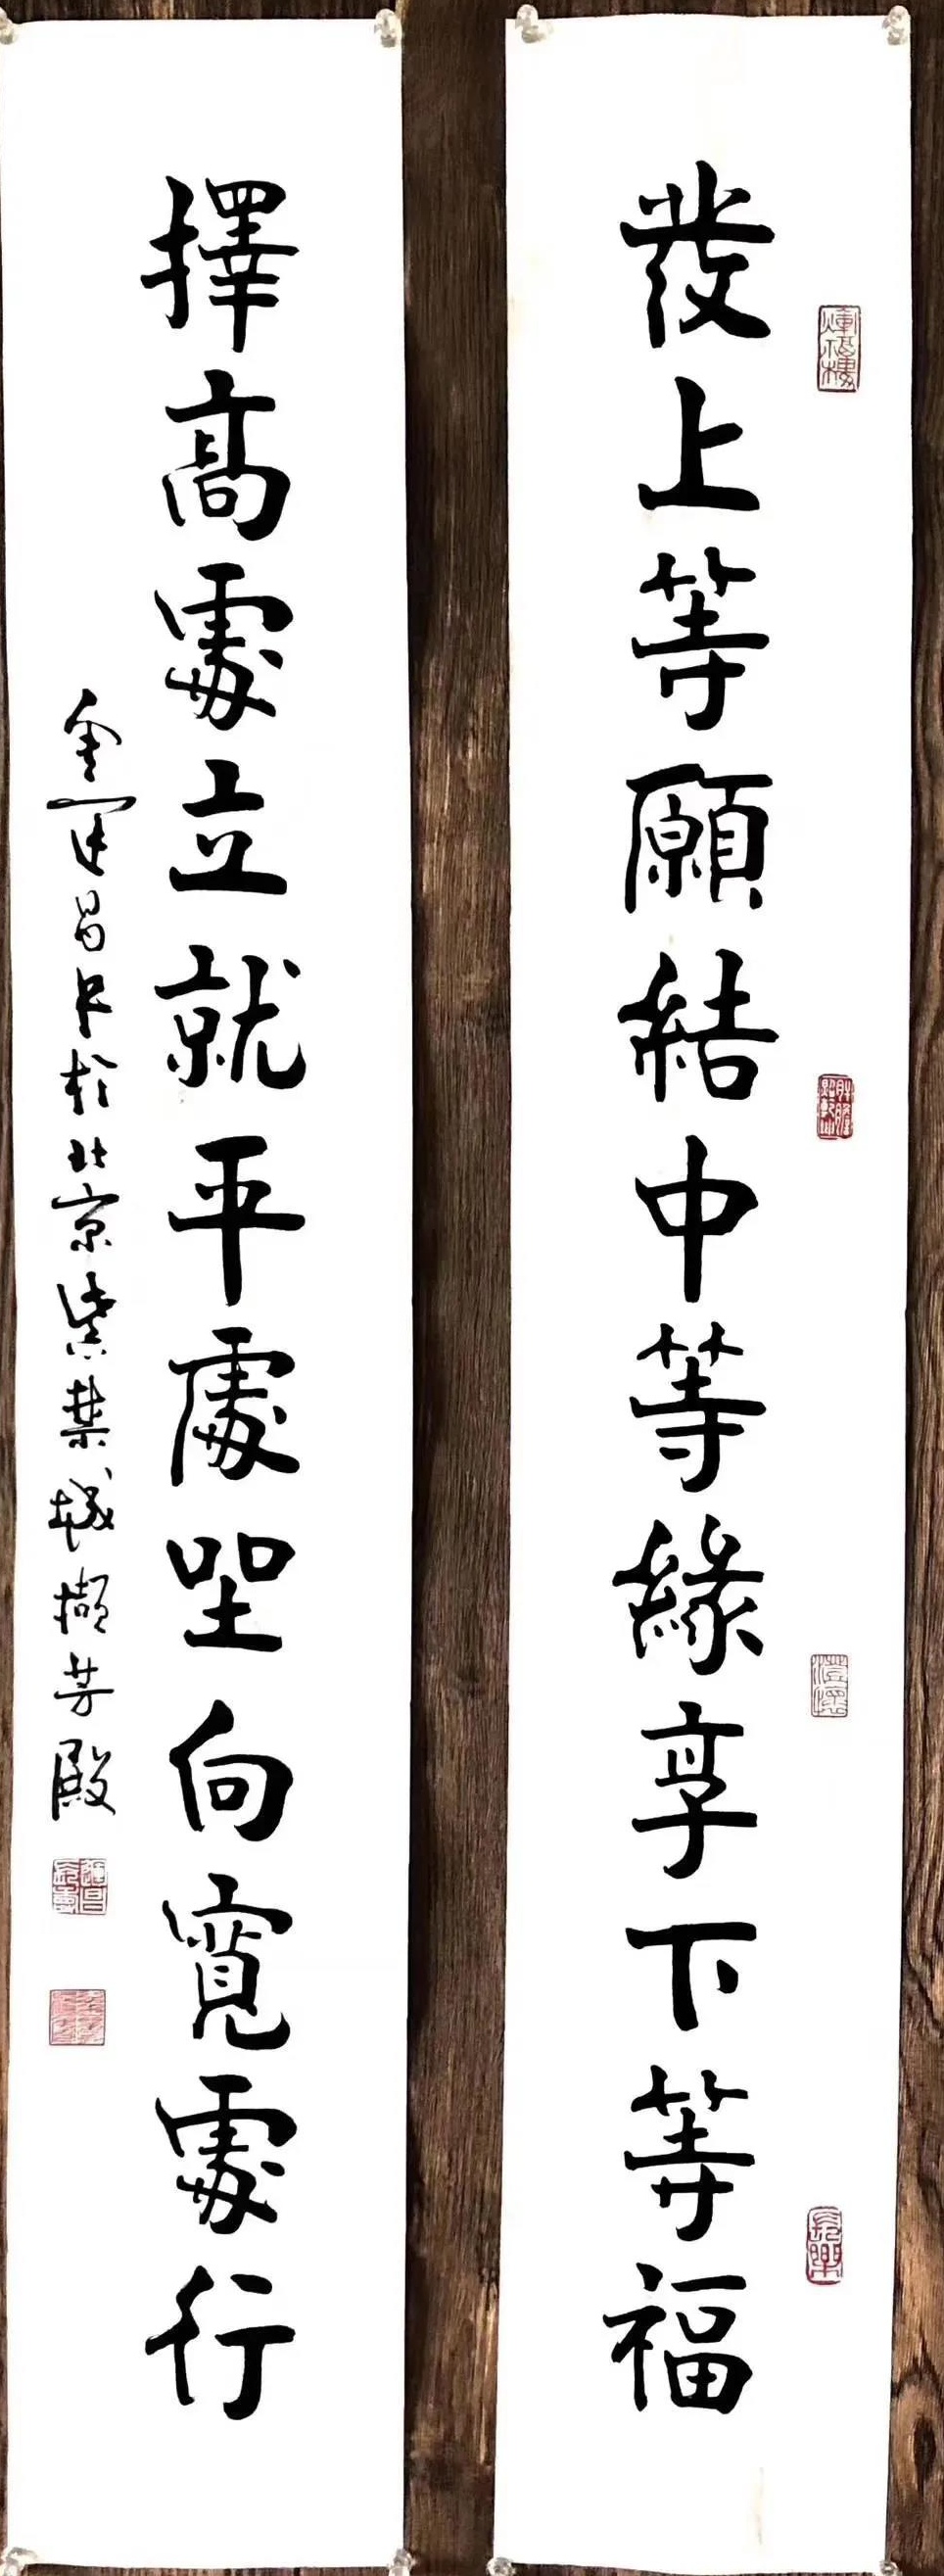 發上等願結中等緣享下等福
擇高處立就平處坐向寬處行
運昌書於北京紫禁城擷芳殿